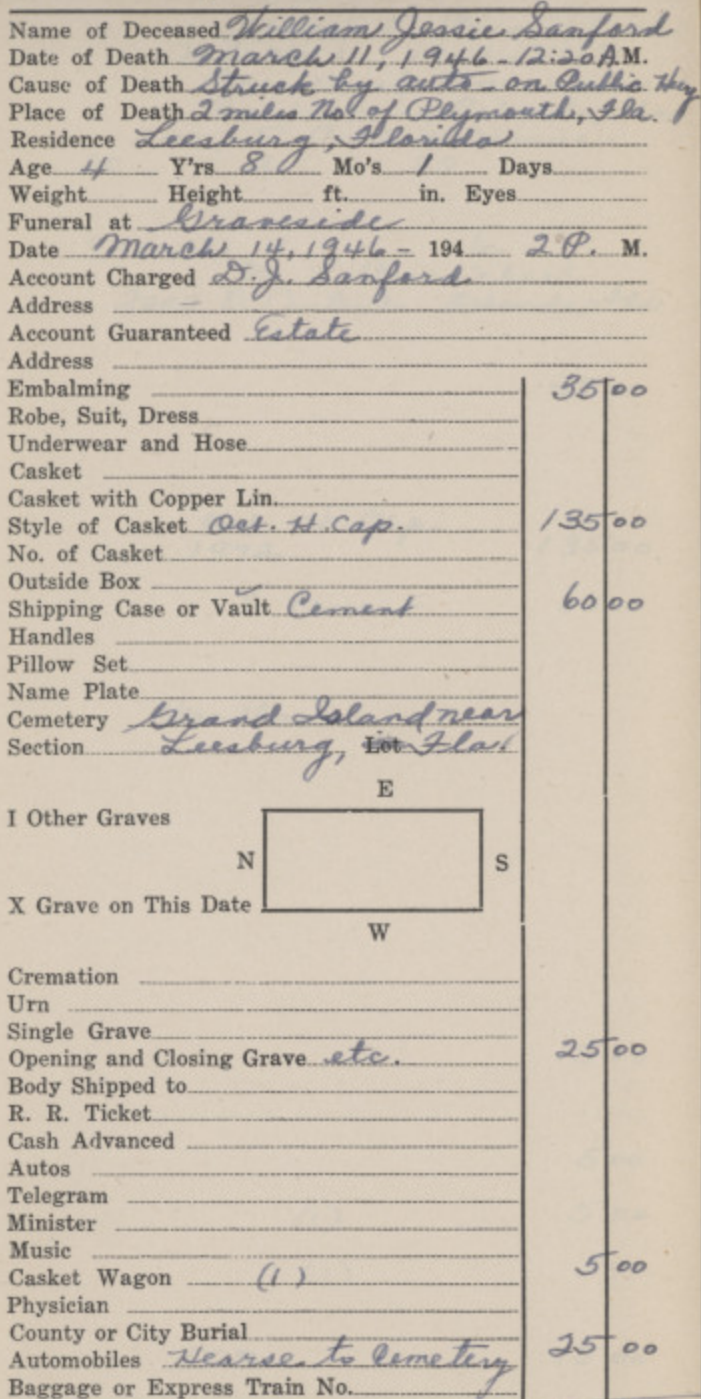 Name of Deceased William Jessie Sanford
Date of Death March 11, 1946 - 12:20 A.M.
Cause of Death Struck by auto - on Public Hwy
Place of Death 2 miles No. of Plymouth, Fla.
Residence Leesburg, Florida
Age 4 Y'rs 8 Mo's 1 Days
Weight Height ft. in. Eyes
Funeral at Graveside
Date March 14, 1946 - 194 2 P. M.
Account Charged D. J. Sanford
Address
Account Guaranteed Estate
Address
Embalming 35 00
Robe, Suit, Dress
Underwear and Hose
Casket
Casket with Copper Lin.
Style of Casket Oct. H. Cap. 135 00
No. of Casket
Outside Box
Shipping Case or Vault Cement 60 00
Handles
Pillow Set
Name Plate
Cemetery Grand Island near
Section Leesburg, Lot Fla.
E
I Other Graves
N S
X Grave on This Date
W
Cremation
Urn
Single Grave
Opening and Closing Grave etc. 25 00
Body Shipped to
R. R. Ticket
Cash Advanced
Autos
Telegram
Minister
Music
Casket Wagon (1) 5 00
Physician
County or City Burial
Automobiles Hearse to Cemetery 25 00
Baggage or Express Train No.